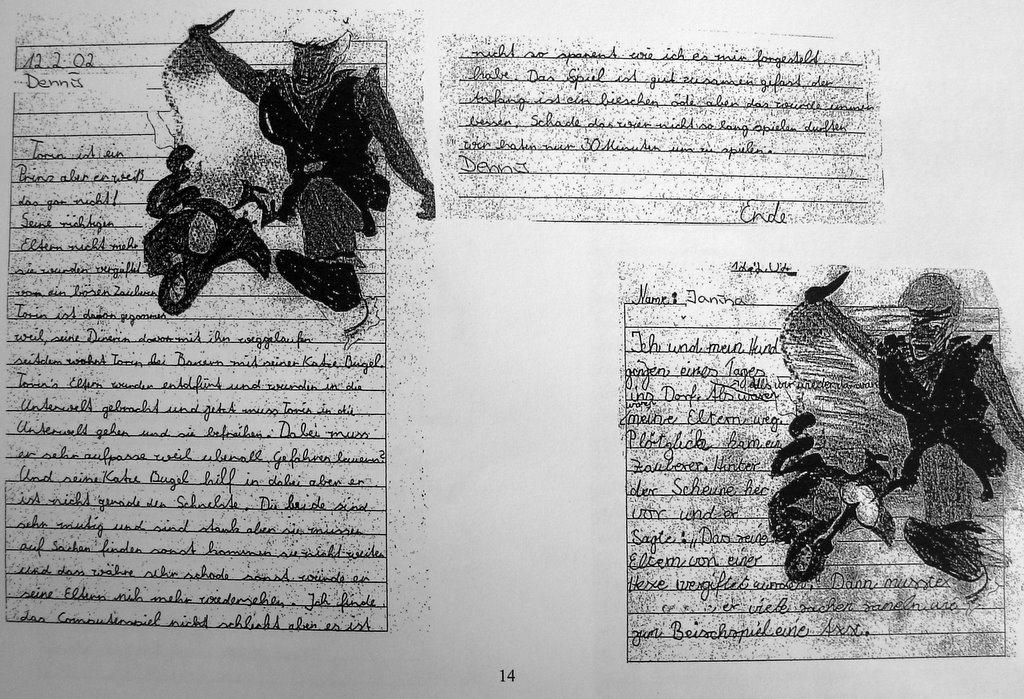 12.2.02
Dennis
Torin ist ein
Prinz aber er weiß
das gar nicht!
Seine richtigen
Eltern nicht mehr
sie wurden vergiftet
vom ein bösen Zauberer
Torin ist davon gegommen
weil, seine Dinerin davon mit ihn weggelaufen
seitdem wohnt Torin bei Bauern mit seiner Katze Bugel.
Torin's Eltern wurden entdfürt und wurden in die
Unterwelt gebracht und jetzt muss Torin in die
Unterwelt gehen und sie befreihen. Dabei muss
er sehr aufpasse weil uberall Gefahren lauern?
Und seine Katze Bugel hilf in dabei aber er
ist nicht gerade den Schnelste. Die beide sind
sehr mutig und sind stark aber sie müssen
auf Sachen finden sonst kommen sie nicht weiter
und das währe sehr schade sonst würde er
seine Eltern nih mehr wiedersehen. Ich finde
das Computerspiel nicht schlicht aber es ist
nicht so spanent wie ich es mir forgestellt
habe. Das Spiel ist gut zusamen gifast der
Anfang ist ein bieschen öde aber das wurde immer
besser. Schade das wier nicht so lang spielen durften
wir haten nur 30 Minuten um zu spielen.
Dennis
Ende
Name: Janina
Ich und mein Hund
gingen eines Tages
ins Dorf. Als wir wieder da waren
waren
meine Eltern weg
Plötzlich kam ein
Zauberer. Hinter
der Scheune her
vor und er
Sagte: „Das deine
Eltern von einer
Hexe vergiftet wurden. Dann musste
er viele sachen sameln wie
zum Beischspiel eine Axt.
14